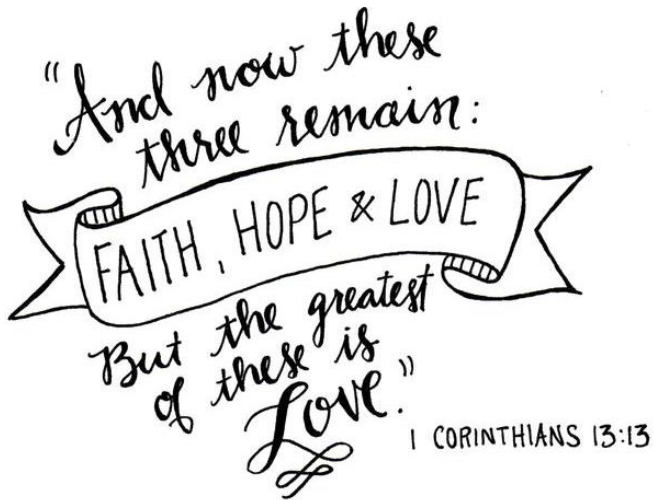 “And now these
three remain:
FAITH, HOPE & LOVE
But the greatest
of these is
Love.”
1 CORINTHIANS 13:13